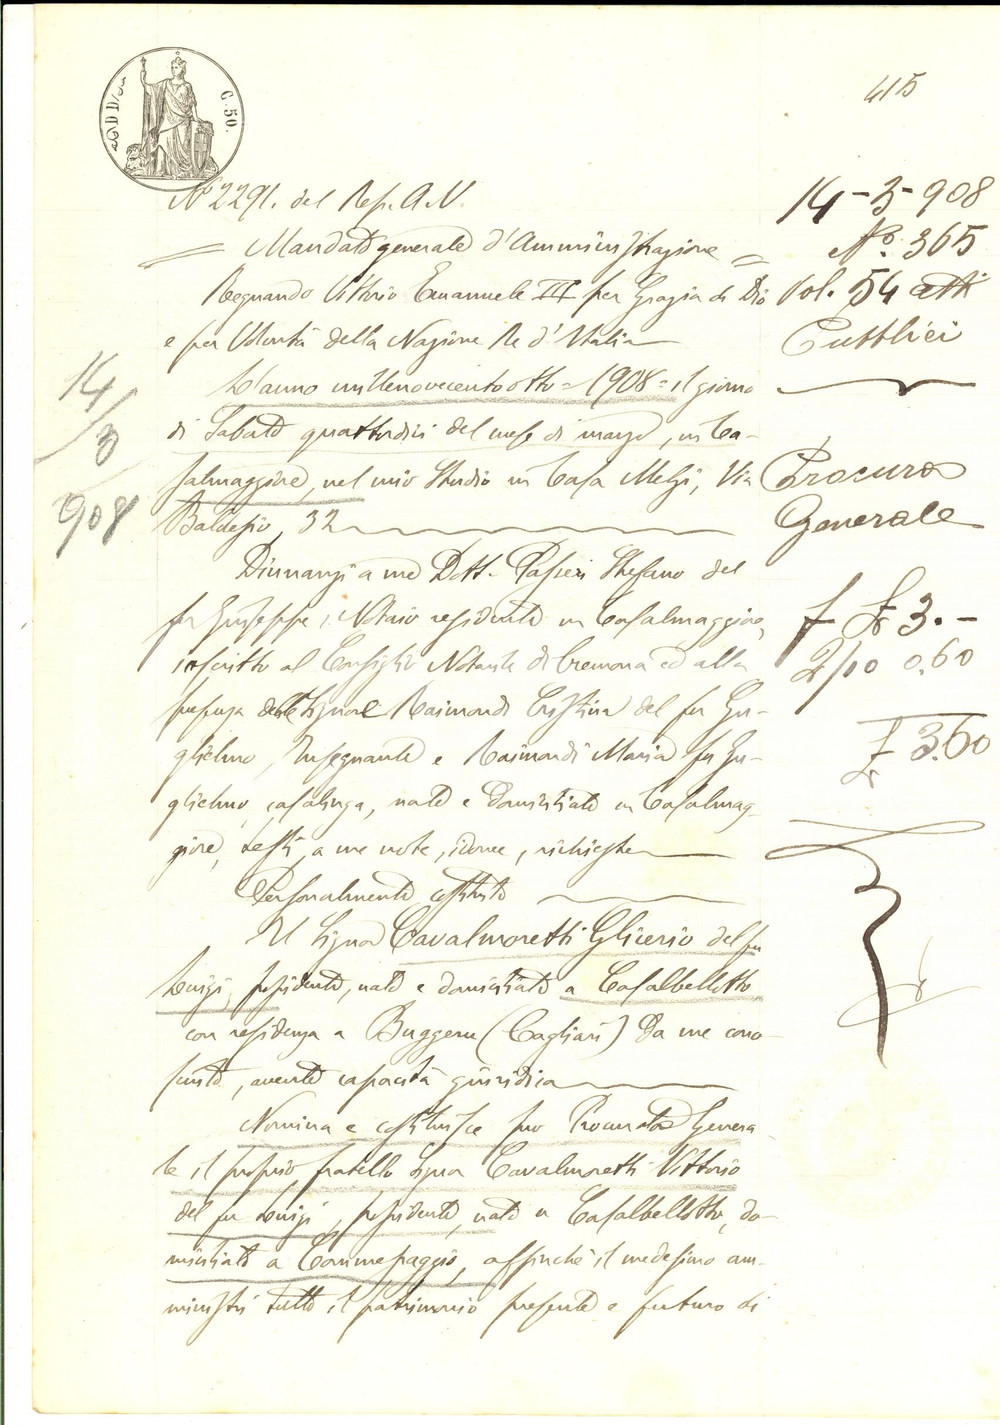 415
C. 50.
Nº 2291. del Rep. A. N.
Mandato generale d'Amministrazione
Regnando Vittorio Emanuele III per Grazia di Dio
e per Volontà della Nazione Re d'Italia
L'anno millenovecentootto = 1908 = il giorno
di Sabato quattordici del mese di marzo, in Ca-
salmaggiore, nel mio Studio in Casa Melzi, Via
Baldesio, 32
Dinnanzi a me Dott. Stefano del
fu Giuseppe, Notaio residente in Casalmaggiore,
iscritto al Consiglio Notarile di Cremona ed alla
presenza delle Signore Raimondi Cristina del fu Gu-
glielmo, Insegnante e Raimondi Maria fu Gu-
glielmo, casalinga, nate e domiciliate in Casalmag-
giore, testi, a me note, idonee, richieste
Personalmente costituito
Il Signor Cavalmoretti Glicerio del fu
Luigi, possidente, nato e domiciliato a Casalbellotto
con residenza a Buggeru (Cagliari) da me cono-
sciuto, avente capacità giuridica
Nomina e costituisce suo Procuratore Genera-
le il proprio fratello Signor Cavalmoretti Vittorio
del fu Luigi, possidente, nato a Casalbellotto, do-
miciliato a Commessaggio, affinchè il medesimo am-
ministri tutto il patrimonio presente e futuro di
14-3-908
Nº. 365
Vol. 54 atti
Pubblici
Procura
Generale
f £ 3.-
2/10 0.60
£ 3.60
14/3
908